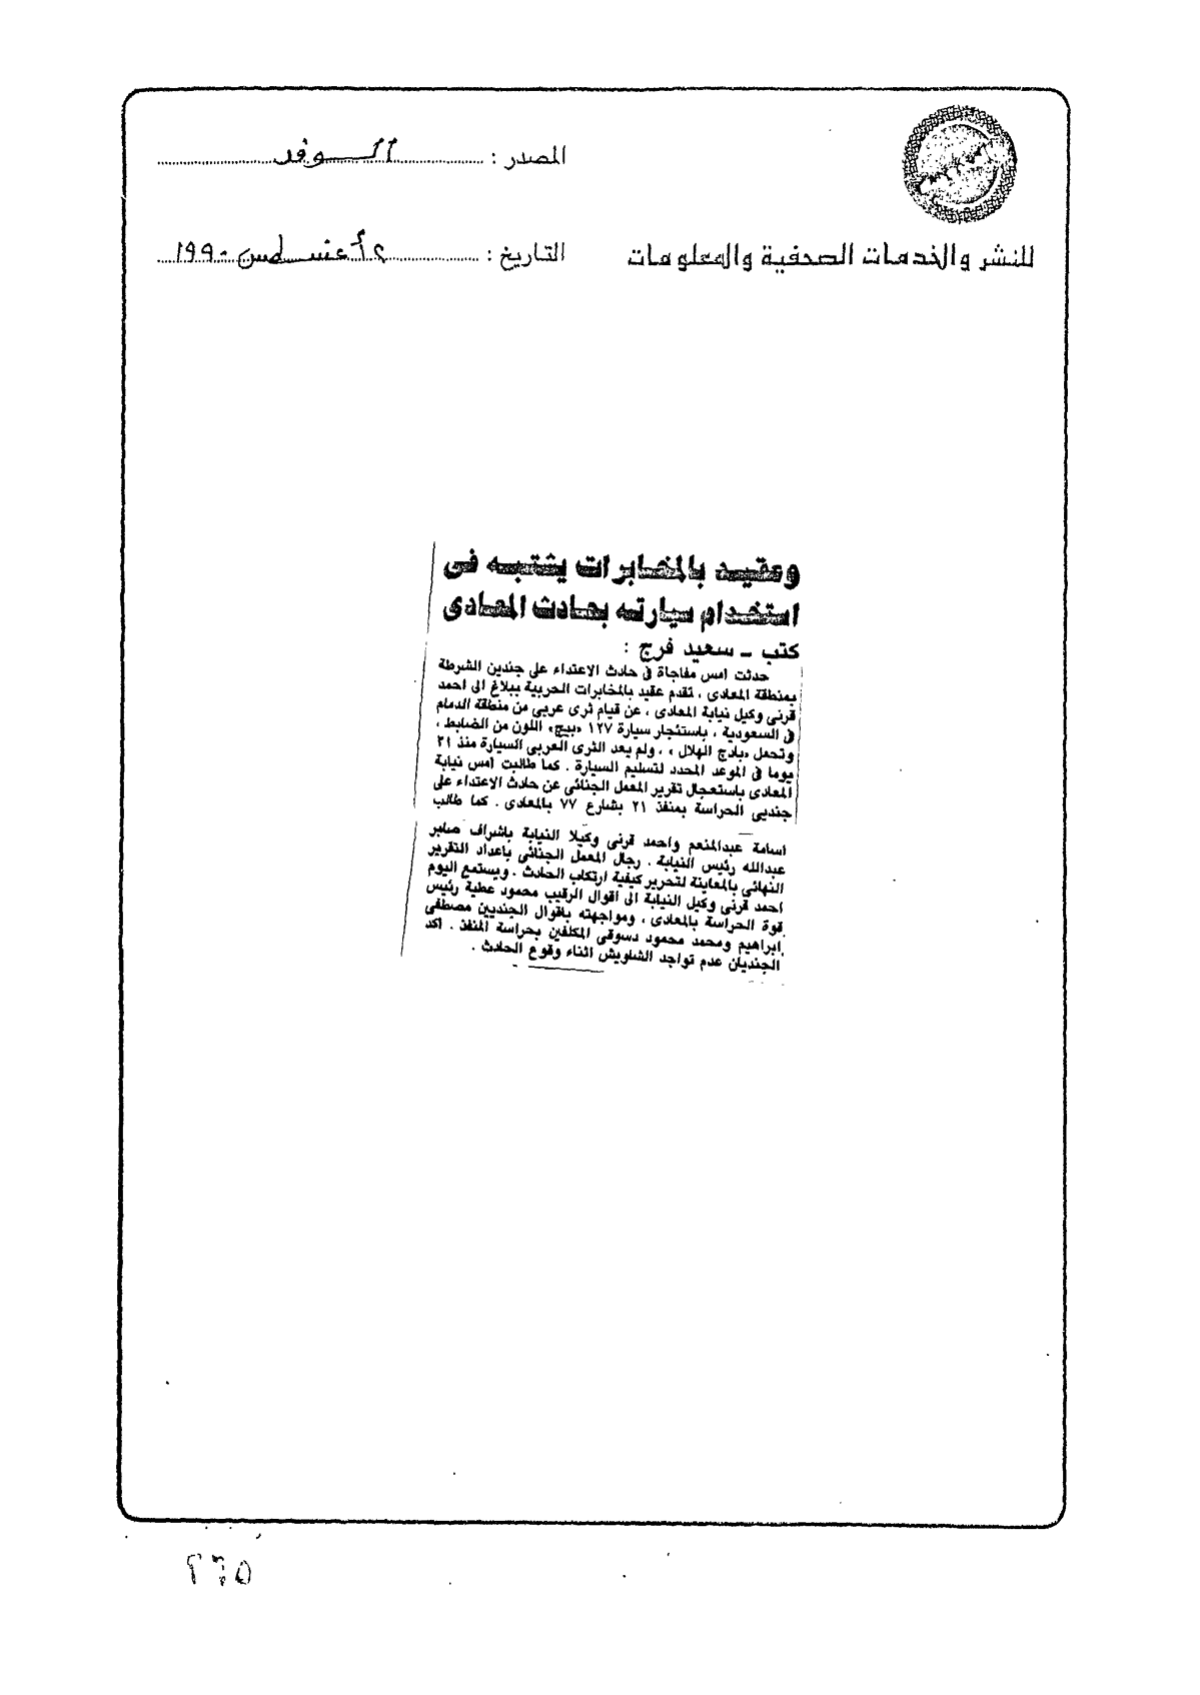 المصدر : الوفد
للنشر والخدمات الصحفية والمعلومات
التاريخ : ٢ أغسطس ١٩٩٠
وعقيد بالمخابرات يشتبه فى
استخدام سيارته بحادث المعادى
كتب ــ سعيد فرج :
حدثت امس مفاجاة فى حادث الاعتداء على جنديين الشرطة
بمنطقة المعادى ، تقدم عقيد بالمخابرات الحربية ببلاغ الى احمد
قرنى وكيل نيابة المعادى ، عن قيام ثرى عربى من منطقة الدمام
فى السعودية ، باستئجار سيارة ١٢٧ «بيج» اللون من الضابط ،
وتحمل «بادج الهلال» ، ولم يعد الثرى العربى السيارة منذ ٢١
يوما فى الموعد المحدد لتسليم السيارة . كما طالبت امس نيابة
المعادى باستعجال تقرير المعمل الجنائى عن حادث الاعتداء على
جنديى الحراسة بمنفذ ٢١ بشارع ٧٧ بالمعادى . كما طالب
اسامة عبدالمنعم واحمد قرنى وكيلا النيابة باشراف صابر
عبدالله رئيس النيابة . رجال المعمل الجنائى باعداد التقرير
النهائى بالمعاينة لتحرير كيفية ارتكاب الحادث . ويستمع اليوم
احمد قرنى وكيل النيابة الى اقوال الرقيب محمود عطية رئيس
قوة الحراسة بالمعادى ، ومواجهته باقوال الجنديين مصطفى
ابراهيم ومحمد محمود دسوقى المكلفين بحراسة المنفذ . اكد
الجنديان عدم تواجد الشاويش اثناء وقوع الحادث .